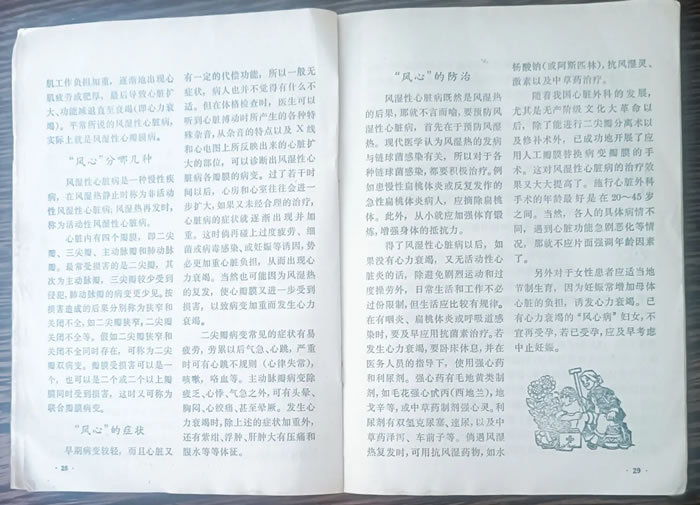 肌工作负担加重，逐渐地出现心
肌疲劳或肥厚，最后导致心脏扩
大、功能减退直至衰竭（即心力衰
竭）。平常所说的风湿性心脏病，
实际上就是风湿性心瓣膜病。
“风心”分哪几种
风湿性心脏病是一种慢性疾
病，在风湿热静止时称为非活动
性风湿性心脏病；风湿热再发时，
称为活动性风湿性心脏病。
心脏内有四个瓣膜，即二尖
瓣、三尖瓣、主动脉瓣和肺动脉
瓣。最常受损害的是二尖瓣，其
次为主动脉瓣，三尖瓣较少受到
侵犯，肺动脉瓣的病变更少见。按
损害造成的后果分别称为狭窄和
关闭不全，如二尖瓣狭窄，二尖瓣
关闭不全等。假如二尖瓣狭窄和
关闭不全同时存在，可称为二尖
瓣双病变。瓣膜受损害可以是一
个，也可以是二个或二个以上瓣
膜同时受到损害，这时又可称为
联合瓣膜病变。
“风心”的症状
早期病变较轻，而且心脏又
· 28 ·
有一定的代偿功能，所以一般无
症状，病人也并不觉得有什么不
适。但在体格检查时，医生可以
听到心脏搏动时所产生的各种特
殊杂音，从杂音的特点以及 X 线
和心电图上所反映出来的心脏扩
大的部位，可以诊断出风湿性心
脏病各瓣膜的病变。过了若干时
间以后，心房和心室往往会进一
步扩大，如果又未经合理的治疗，
心脏病的症状就逐渐出现并加
重。这时倘再碰上过度疲劳、细
菌或病毒感染、或妊娠等诱因，势
必更加重心脏负担，从而出现心
力衰竭。当然也可能因为风湿热
的复发，使心瓣膜又进一步受到
损害，以致病变加重而发生心力
衰竭。
二尖瓣病变常见的症状有易
疲劳，劳累以后气急、心跳，严重
时可有心跳不规则（心律失常），
咳嗽，咯血等。主动脉瓣病变除
疲乏、心悸、气急之外，可有头晕、
胸闷、心绞痛，甚至晕厥。发生心
力衰竭时，除上述的症状加重外，
还有紫绀、浮肿、肝肿大有压痛和
腹水等等体征。
“风心”的防治
风湿性心脏病既然是风湿热
的后果，那就不言而喻，要预防风
湿性心脏病，首先在于预防风湿
热。现代医学认为风湿热的发病
与链球菌感染有关，所以对于各
种链球菌感染，都要积极治疗。例
如患慢性扁桃体炎或反复发作的
急性扁桃体炎病人，应摘除扁桃
体。此外，从小就应加强体育锻
炼，增强身体的抵抗力。
得了风湿性心脏病以后，如
果没有心力衰竭，又无活动性心
脏炎的话，除避免剧烈运动和过
度操劳外，日常生活和工作不必
过份限制，但生活应比较有规律。
在有咽炎、扁桃体炎或呼吸道感
染时，要及早应用抗菌素治疗。若
发生心力衰竭，要卧床休息，并在
医务人员的指导下，使用强心药
和利尿剂。强心药有毛地黄类制
剂，如毛花强心甙丙（西地兰），地
戈辛等，或中草药制剂强心灵。利
尿剂有双氢克尿塞、速尿，以及中
草药泽泻、车前子等。倘遇风湿
热复发时，可用抗风湿药物，如水
杨酸钠（或阿斯匹林），抗风湿灵、
激素以及中草药治疗。
随着我国心脏外科的发展，
尤其是无产阶级文化大革命以
后，除了能进行二尖瓣分离术以
及修补术外，已成功地开展了应
用人工瓣膜替换病变瓣膜的手
术。这对风湿性心脏病的治疗效
果又大大提高了。施行心脏外科
手术的年龄最好是在20～45岁
之间。当然，各人的具体病情不
同，遇到心脏功能急剧恶化等情
况，那就不应片面强调年龄因素
了。
另外对于女性患者应适当地
节制生育，因为妊娠常增加母体
心脏的负担，诱发心力衰竭。已
有心力衰竭的“风心病”妇女，不
宜再受孕，若已受孕，应及早考虑
中止妊娠。
· 29 ·